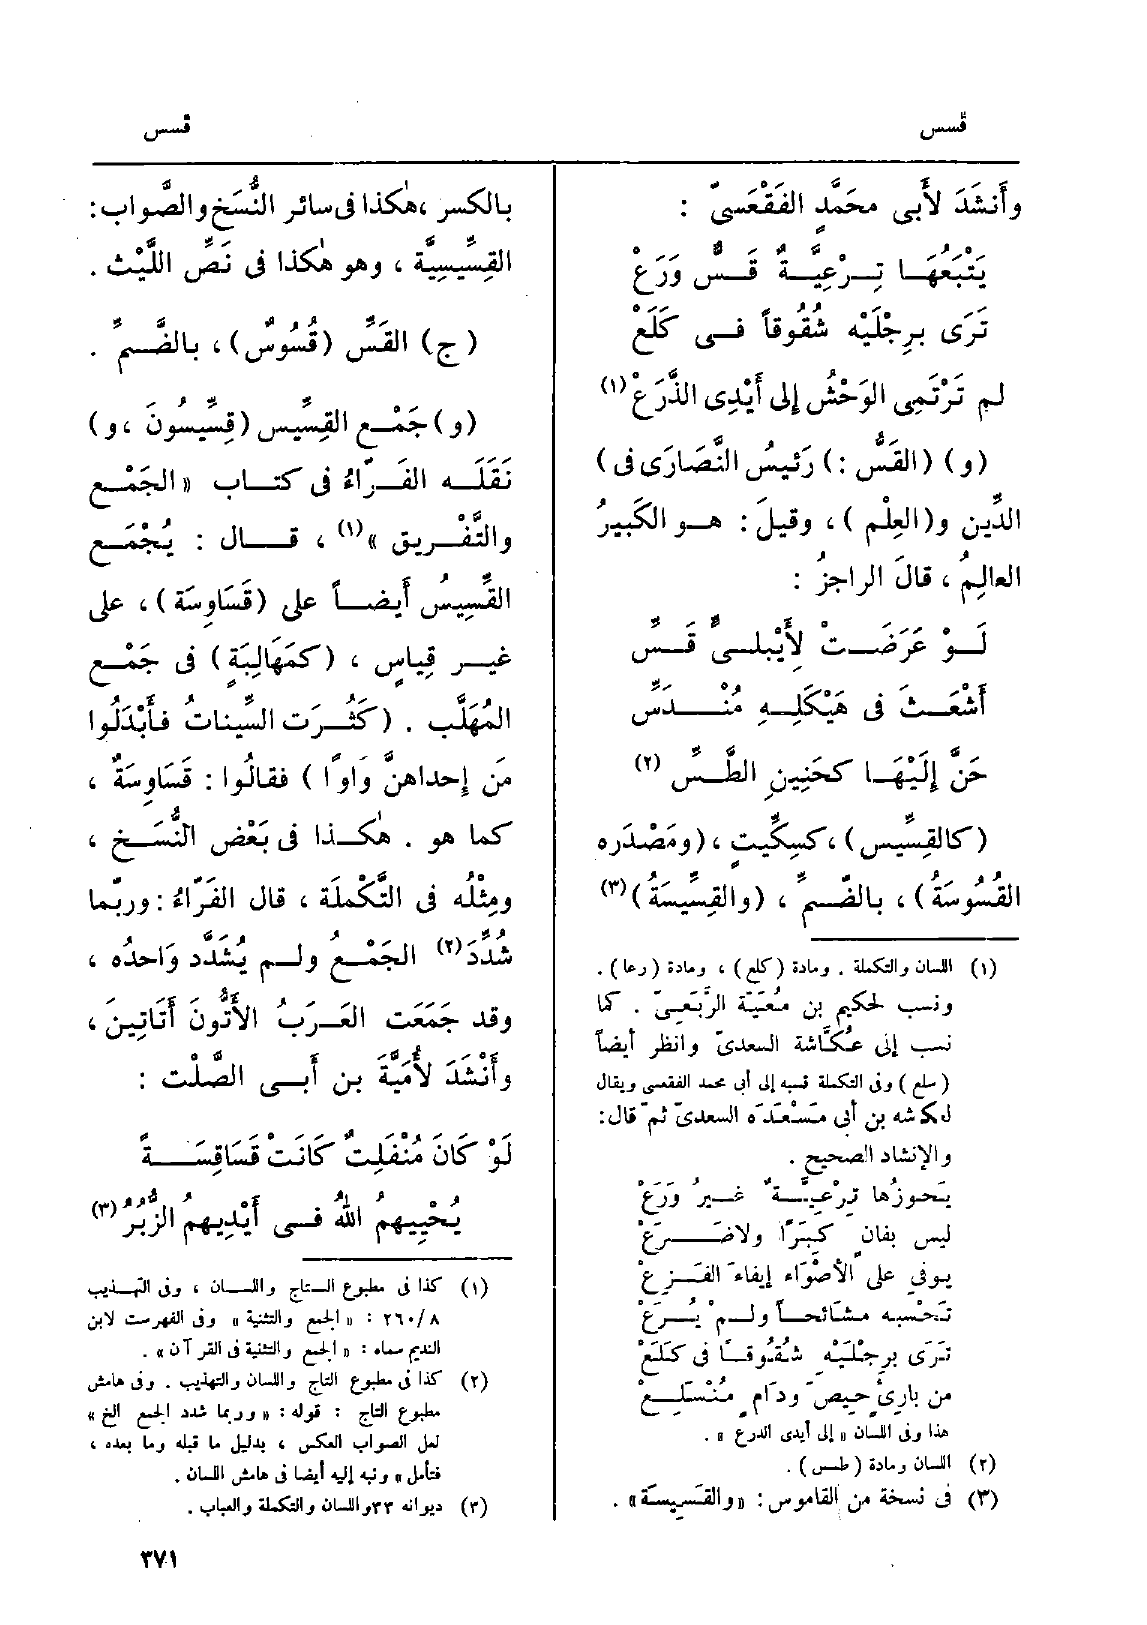 قسس
قسس
وأَنشَدَ لأَبى محمَّدٍ الفَقْعَسىّ :
يَتْبَعُهَا تِرْعِيَّةٌ قَسٌّ وَرَعْ
تَرَى بِرِجْلَيْه شُقُوقاً فى كَلَعْ
لم تَرْتَمِى الوَحْشُ إلى أَيْدِى الذَّرَعْ (١)
(و) (القَسُّ :) رَئيسُ النَّصَارَى فى)
الدِّين و(العِلْم)، وقيلَ : هو الكَبيرُ
العالِمُ ، قالَ الراجزُ :
لَوْ عَرَضَتْ لأَيْبلىٍّ قَسِّ
أَشْعَثَ فى هَيْكَلِهِ مُنْدَسِّ
حَنَّ إلَيْهَا كحَنِينِ الطَّسِّ (٢)
(كالقِسِّيس)، كسِكِّيتٍ ، (ومَصْدَره
القُسُوسَةُ)، بالضَّمِّ ، (والقِسِّيسَةُ) (٣)
(١) اللسان والتكملة . ومادة (كلع) ، ومادة (رعا) .
ونسب لحكيم بن مُعَيَّة الرَّبَعىّ . كما
نسب إلى عُكَّاشة السعدىّ وانظر أيضاً
(سلع) وفى التكملة نسبه إلى أبى محمد الفقعسى ويقال
لعكاشه بن أبى مَسْعَدَه السعدىّ ثمّ قال :
والإنشاد الصحيح .
يَحوزُها تِرْعِيَّةٌ غيرُ وَرَعْ
ليس بفانٍ كِبَرًا ولا ضَرَعْ
يوفى على الأضْوَاء إيفاءَ القَزَعْ
تَحْسبه مشائحاً ولم يُرَعْ
تَرَى برِجْلَيْه شقُوقاً فى كلَعْ
من بارِئٍ حِيصَ ودَامٍ مُنْسَلِعْ
هذا وفى اللسان « إلى أيدى الدرع » .
(٢) اللسان ومادة (طس) .
(٣) فى نسخة من القاموس : «والقَسِّيسَة» .
بالكسر ،هٰكذا فى سائر النُّسَخ والصَّواب:
القِسِّيسيَّة ، وهو هٰكذا فى نَصِّ اللَّيْث .
(ج) القَسِّ (قُسُوسٌ)، بالضَّمِّ .
(و) جَمْع القِسِّيس (قِسِّيسُونَ ،و)
نَقَلَه الفَرّاءُ فى كتاب « الجَمْع
والتَّفْريق » (١) ، قال : يُجْمَع
القِسِّيسُ أَيضاً على (قَسَاوِسَة)، على
غير قِياسٍ ، (كمَهَالِبَةٍ) فى جَمْع
المُهَلَّب . (كَثُرَت السِّيناتُ فأَبْدَلُوا
مَن إحداهنَّ وَاوًا) فقالُوا : قَسَاوِسَةٌ ،
كما هو . هٰكذا فى بَعْض النُّسَخ ،
ومِثْلُه فى التَّكْملَة ، قال الفَرّاءُ : وربّما
شُدِّدَ (٢) الجَمْعُ ولم يُشَدَّد وَاحدُه ،
وقد جَمَعَت العَرَبُ الأَتُّونَ أَتَاتِينَ ،
وأَنْشَدَ لأُمَيَّةَ بن أَبى الصَّلْت :
لَوْ كَانَ مُنْفَلِتٌ كَانَتْ قَسَاقِسَةً
يُحْيِيهمُ اللهُ فى أَيْدِيهمُ الزُّبُرُ (٣)
(١) كذا فى مطبوع التاج واللسان ، وفى التهذيب
٢٦٠/٨ : « الجمع والتثنية » وفى الفهرست لابن
النديم سماه : « الجمع والتثنية فى القرآن » .
(٢) كذا فى مطبوع التاج واللسان والتهذيب . وفى هامش
مطبوع التاج : قوله : « وربما شدد الجمع الخ »
لعل الصواب العكس ، بدليل ما قبله وما بعده ،
فتأمل » ونبه إليه أيضا فى هامش اللسان .
(٣) ديوانه ٣٣ واللسان والتكملة والعباب .
٣٧١